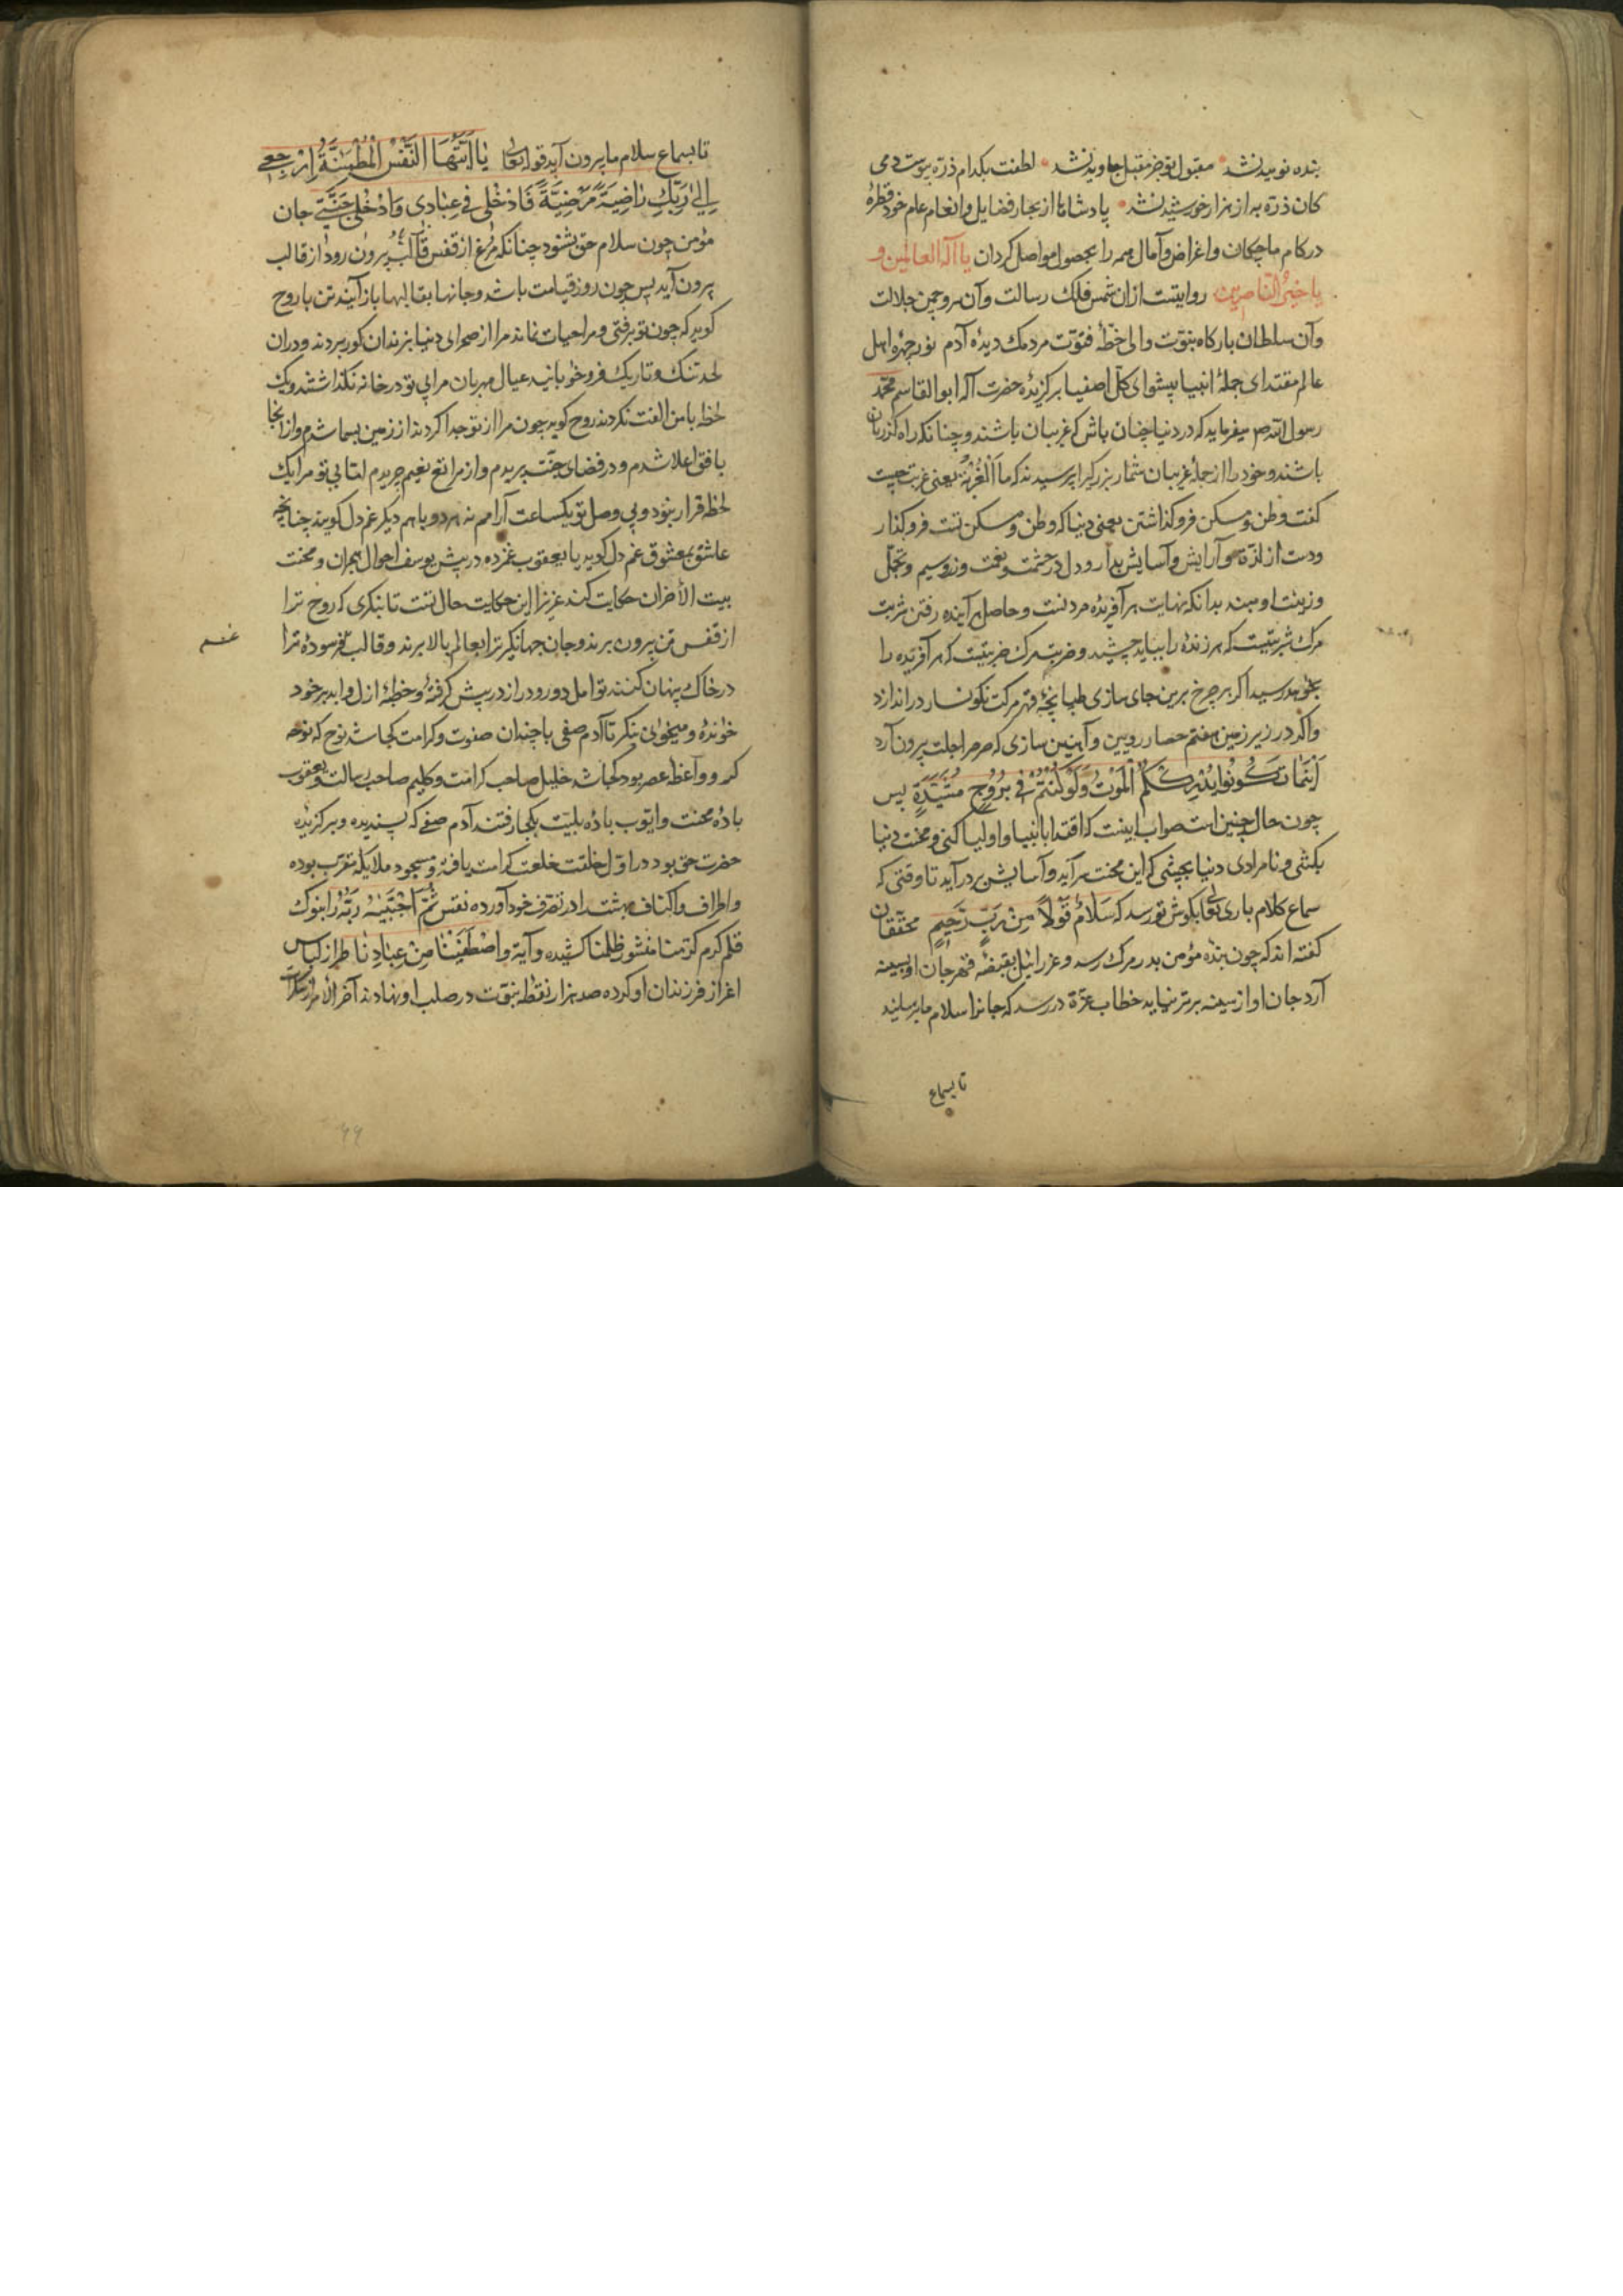 بنده نومید نشد مقبول تو جز مقبل جاوید نشد لطفت بکدام ذره پیوست دمی
کان ذره به از هزار خورشید نشد پادشاها از بحار فضایل و انعام عام خود قطرهٔ
در کام ما چکان و اغراض و آمال همه را بحصول مواصل کردان یا اله العالمین و
یا خیر الناصرین روایتست ازان شمس فلک رسالت وآن سرو چمن جلالت
وآن سلطان بارکاه نبوت والی خطهٔ فتوت مردمک دیدهٔ آدم نور چهرهٔ اهل
عالم مقتدای جملهٔ انبیا پیشوای کل اصفیا برکزیدهٔ حضرت اله ابو القاسم محمد
رسول الله ص میفرماید که در دنیا چنان باش که غریبان باشند و چنانکه راه کذریان
باشند و خود را از جملهٔ غریبان شمار پرسیدند که ما الغربة یعنی غربت چیست
کفت وطن و مسکن فرو کذاشتن یعنی دنیا که وطن و مسکن تست فرو کذار
ودست از و آرایش و آسایش بدار و دل در حشمت و نعمت و زر و سیم و تجمل
وزینت او مبند بدانکه نهایت هر آفریدهٔ مردنست و حاصل هر آینده رفتن شربت
مرک شربتیست که هر زندهٔ را بباید چشید و ضربت مرک ضربتیست که هر آفریده را
بخواهد رسید اکر بر چرخ برین جای سازی طپانچهٔ قهر مرکت نکونسار در اندازد
واکر در زیر زمین هفتم حصار رویین و آهنین سازی که صرصر اجلت بیرون آرد
أَيْنَمَا تَكُونُوا يُدْرِكْكُمُ الْمَوْتُ وَلَوْ كُنْتُمْ فِي بُرُوجٍ مُشَيَّدَةٍ پس
چون حال چنین است صواب اینست که اقتدا بانبیا و اولیا کنی و محنت دنیا
بکشی و نامرادی دنیا بچشی که این محنت سر آید و آسایش بر در آید تا وقتی که
سماع کلام باری تعالی بکوش تو رسد که سَلَامٌ قَوْلًا مِنْ رَبٍّ رَحِيمٍ محققان
کفته اند که چون بندهٔ مؤمن بدر مرک رسد و عزرائیل بقبضهٔ قهر جان او بسینه
آرد جان او از سینه برتر نیاید خطاب عزة در رسد که جانرا سلام ما برسانید
تا بسماع
تا بسماع سلام ما بیرون آید قوله تعالی يَا أَيَّتُهَا النَّفْسُ الْمُطْمَئِنَّةُ ارْجِعِي
إِلَى رَبِّكِ رَاضِيَةً مَرْضِيَّةً فَادْخُلِي فِي عِبَادِي وَادْخُلِي جَنَّتِي جان
مؤمن چون سلام حق بشنود چنانکه مرغ از قفس قالب بیرون رود از قالب
بیرون آید پس چون روز قیامت باشد و جانها بقالبها باز آیند تن با روح
کوید که چون تو برفتی و مرا حیات نماند مرا از صحرای دنیا بزندان کور بردند و دران
لحد تنک و تاریک فرو خوابانید عیال مهربان مرا بی تو در خانه نکذاشتند و یک
لحظه با من الفت نکردند روح کوید چون مرا از تو جدا کردند از زمین بسما شدم و از انجا
بافق اعلا شدم و در فضای جنت پریدم و از مراتع نعیم چریدم اما بی تو مرا یک
لحظه قرار نبود و بی وصل تو یکساعت آرامم نه هر دو باهم دیکر غم دل کویند چنانچه
عاشق بمعشوق غم دل کوید یا یعقوب غمزده در پیش یوسف احوال هجران و محنت
بیت الأحزان حکایت کند عزیزا این حکایت حال تست تا بنکری که روح ترا
از قفس تن بیرون برند و جان جهانکیر ترا بعالم بالا برند و قالب فرسودهٔ ترا
غم
در خاک پنهان کنند تو امل دور و دراز در پیش کرفتهٔ و خطبهٔ ازل و ابد بر خود
خواندهٔ و میخوانی بنکر تا آدم صفی با چندان صفوت و کرامت کجا شد نوح که نوحه
کر و واعظ عصر بود کجا شد خلیل صاحب کرامت و کلیم صاحب رسالت و یعقوب
بادهٔ محنت و ایوب بادهٔ بلیت بکجا رفتند آدم صفی که پسندیده و برکزیده
حضرت حق بود در اول خلقت خلعت کرامت یافته و مسجود ملایکهٔ مقرب بوده
واطراف و اکناف بهشت را در تصرف خود آورده نقس ثُمَّ اجْتَبَاهُ رَبُّهُ را بنوک
قلم کرم کرمنا منشور ظلمنا کشیده و آیة واصطفینا من عبادنا طراز لباس
اعزاز فرزندان او کرده صد هزار نقطه نبوت در صلب او نهادند آخر الأمر